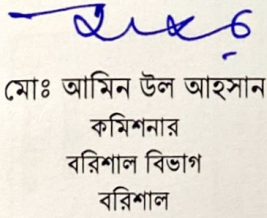 মোঃ আমিন উল আহসান
কমিশনার
বরিশাল বিভাগ
বরিশাল